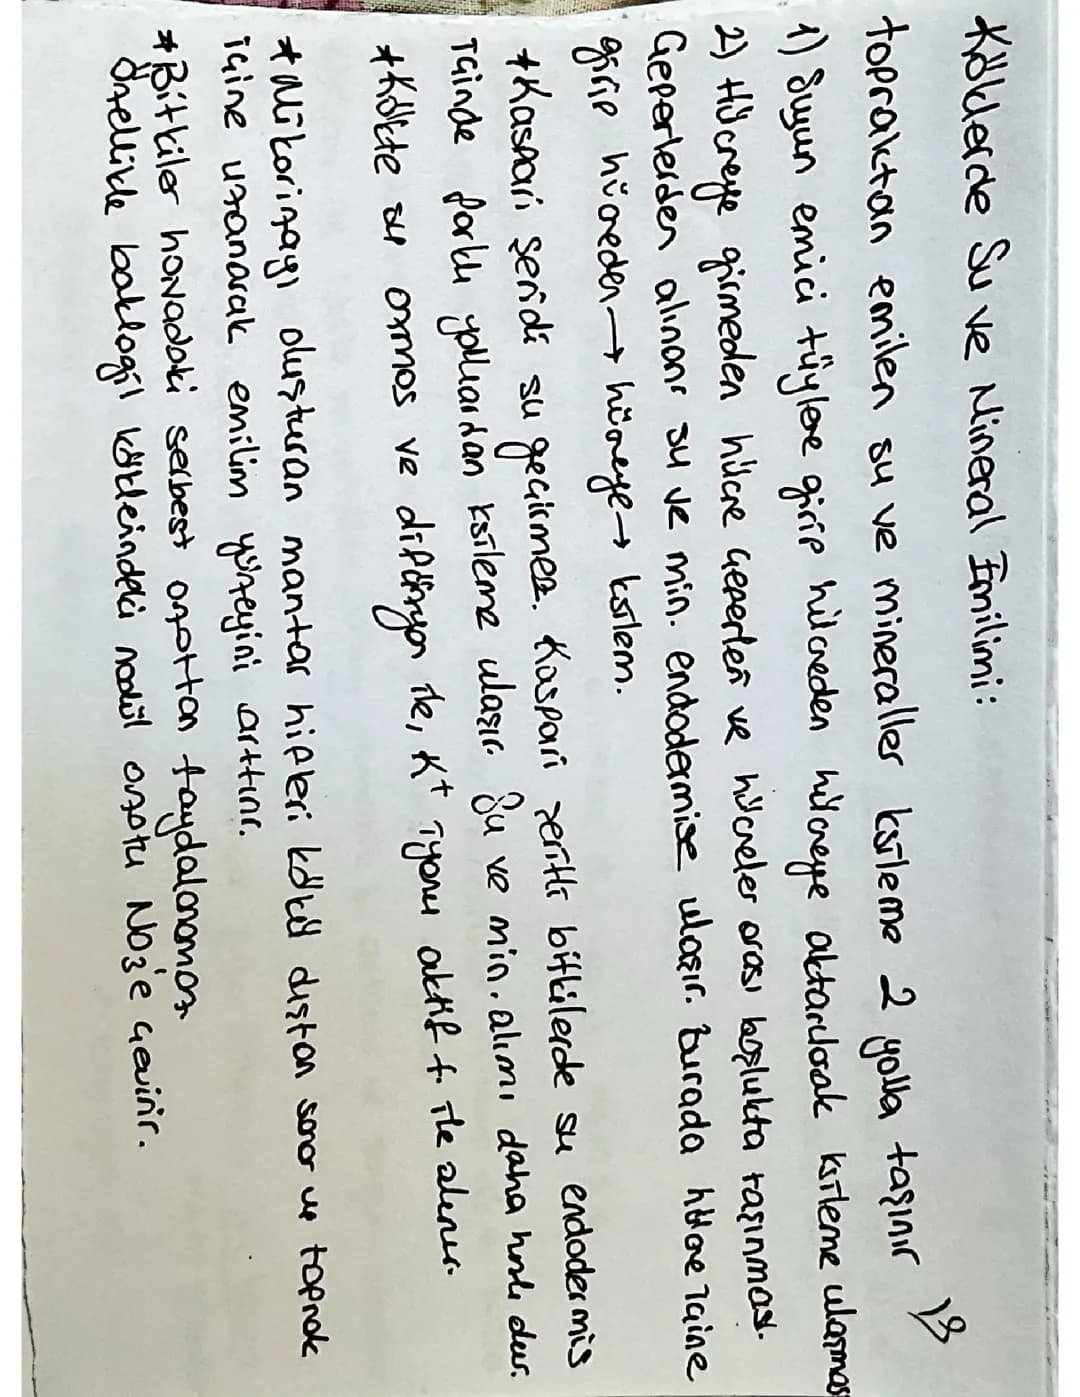 Köklerde Su ve Mineral Emilimi:
19
topraktan emilen su ve mineraller ksileme 2 yolla taşınır
1) Suyun emici tüylere girip hücreden hücreye aktarılarak ksileme ulaşması
2) Hücreye girmeden hücre çeperleri ve hücreler arası boşlukta taşınması.
Çeperlerden alınan su ve min. endodermise ulaşır. Burada hücre içine
girip hücreden → hücreye → ksilem.
* Kaspari şeridi su geçirmez. Kaspari şeritli bitkilerde su endodermis
içinde farklı yollardan ksileme ulaşır. Su ve min. alımı daha hızlı dur.
* Kökte su ozmos ve difüzyon ile, K+ iyonu aktif t. ile alınır.
* Mikorizayı oluşturan mantar hifleri kökü dıştan sarar ve toprak
içine uzanarak emilim yüzeyini arttırır.
* Bitkiler havadaki serbest azottan faydalanamaz
özellikle baklagil köklerindeki nodül azotu NO3'e çevirir.